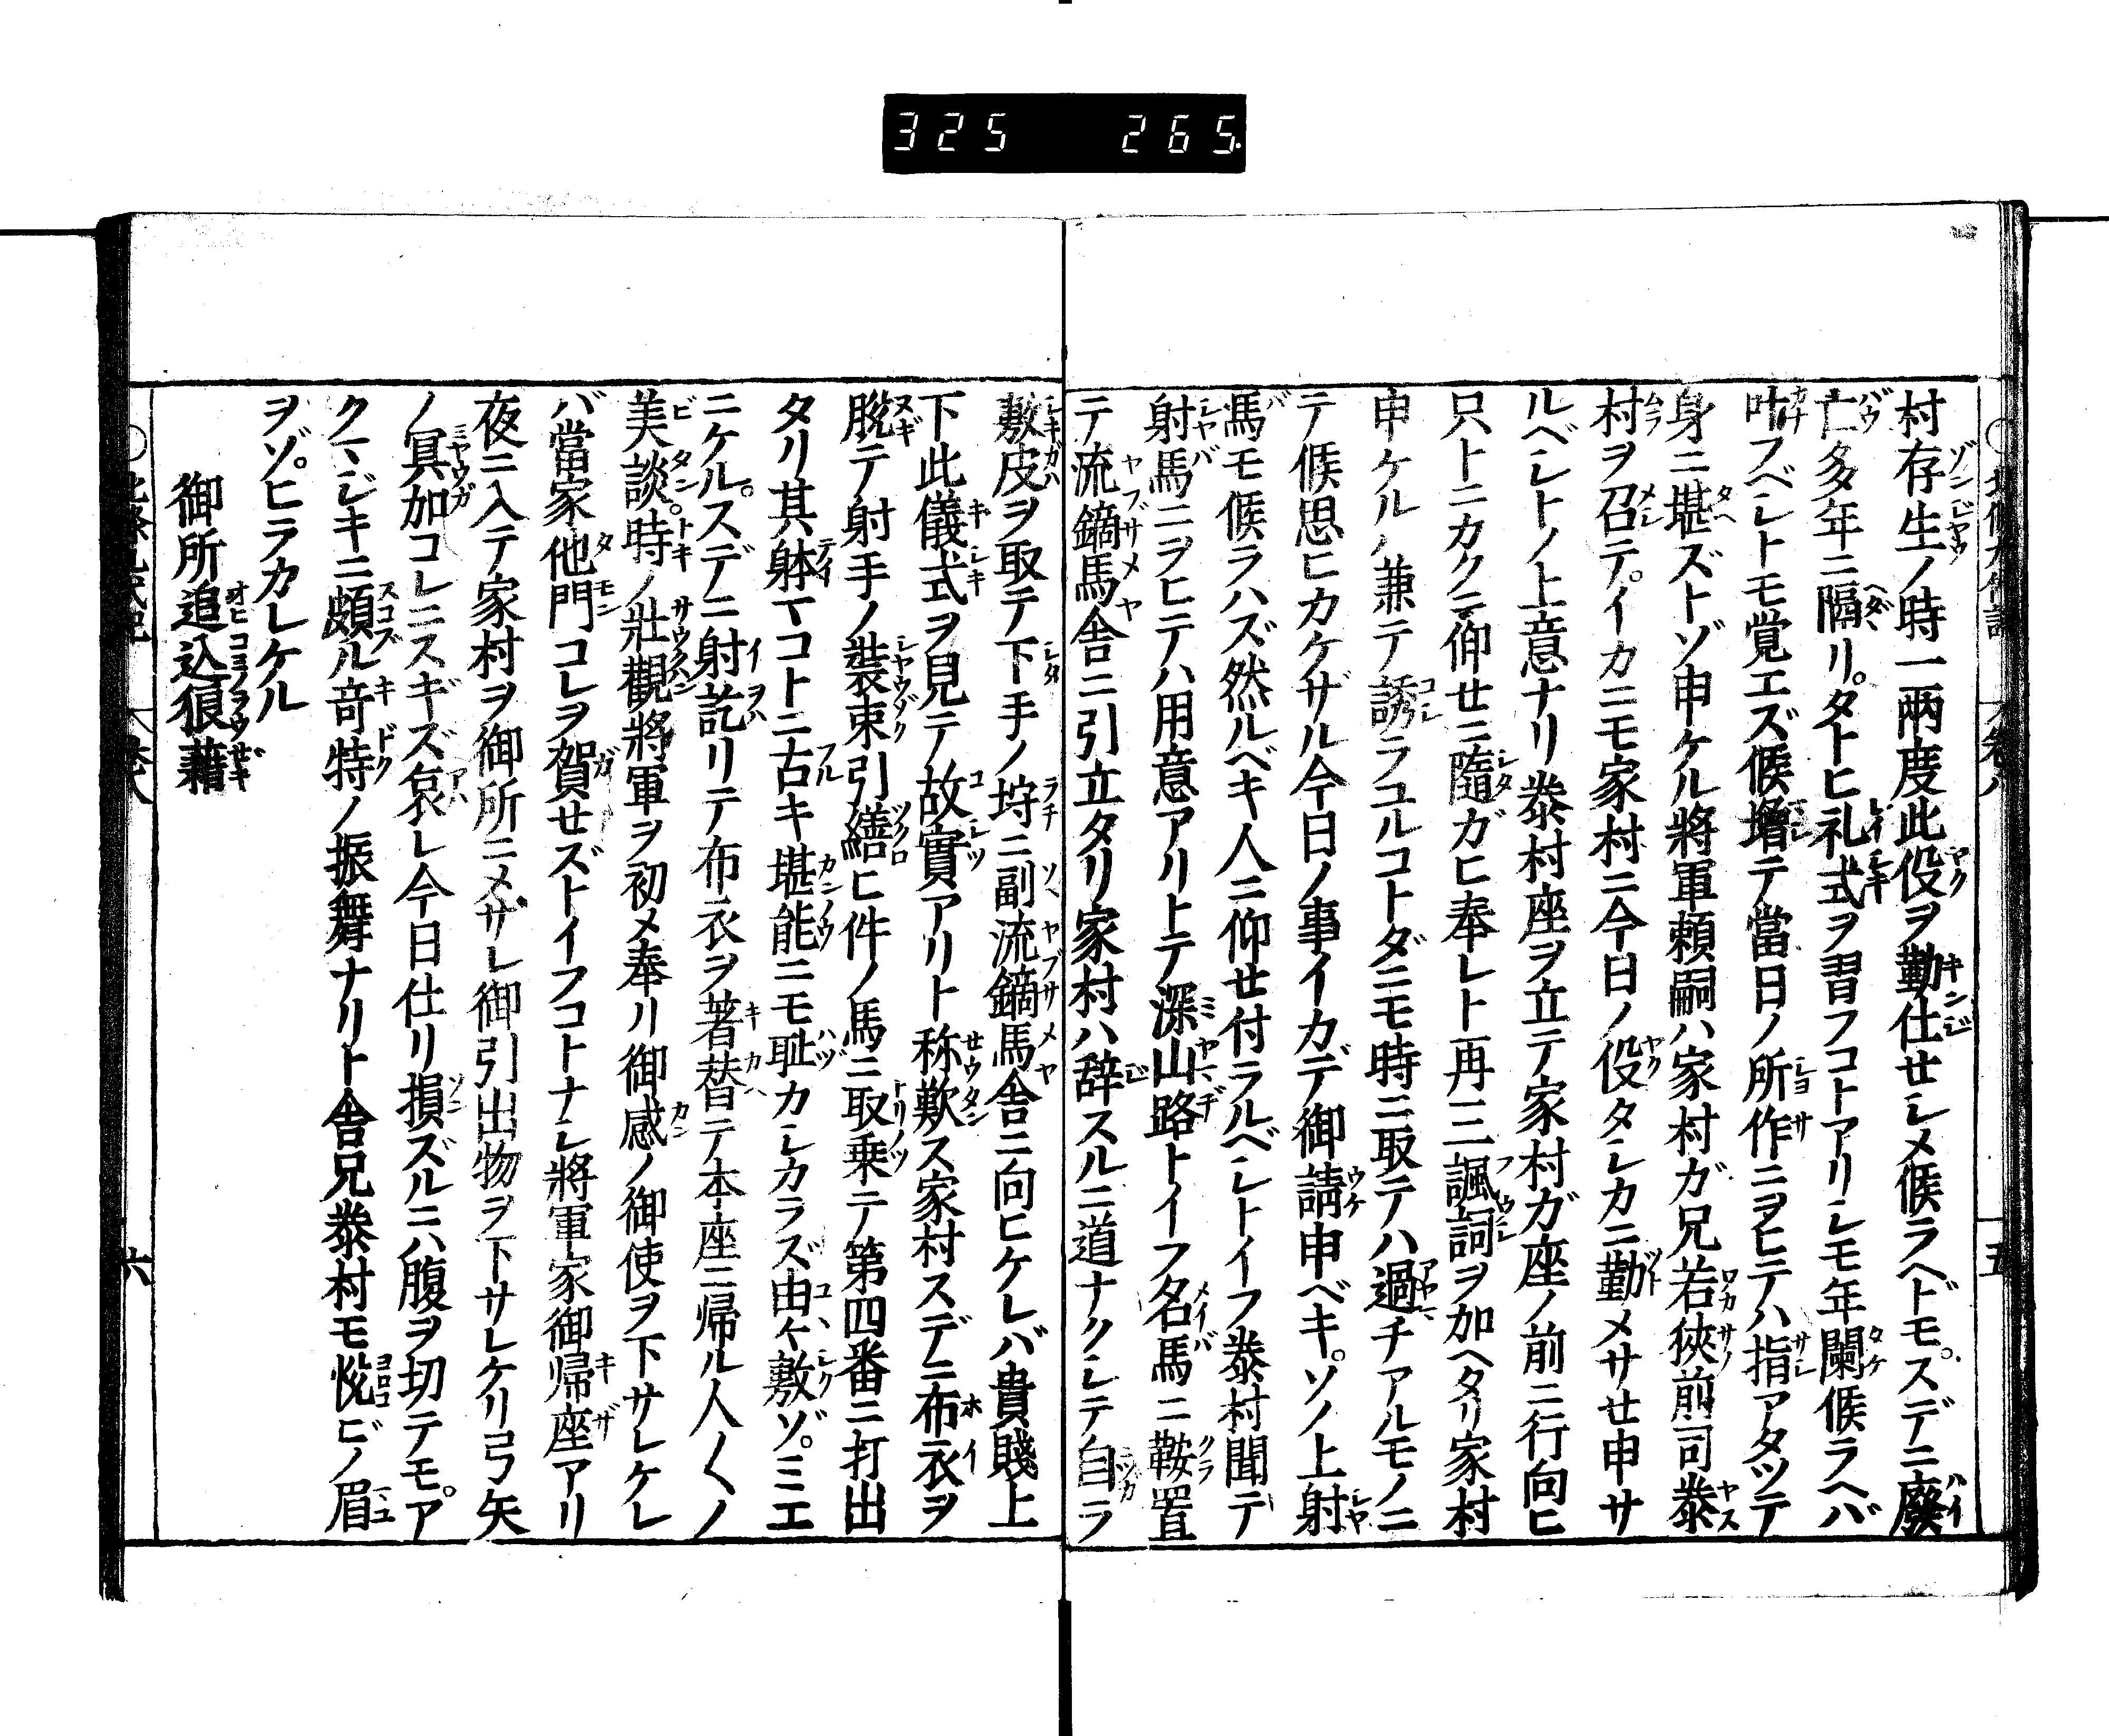 325 265.
村存生ノ時一兩度此役ヲ勤仕せシメ候ラヘドモ。スデニ廢
亡多年ニ隔リ。タトヒ礼式ヲ習フコトアリシモ年闌候ラヘバ
叶フベシトモ覚エズ候増テ當日ノ所作ニヲヒテハ指アタツテ
身ニ堪ズトゾ申ケル將軍頼嗣ハ家村ガ兄若狹前司泰
村ヲ召テ。イカニモ家村ニ今日ノ役タシカニ勤メサせ申サ
ルベシトノ上意ナリ泰村座ヲ立テ家村ガ座ノ前ニ行向ヒ
只トニカクニ仰せニ隨ガヒ奉レト再三諷詞ヲ加ヘタリ家村
申ケルハ兼テ誘ラユルコトダニモ時ニ取テハ過チアルモノニ
テ候思ヒカケザル今日ノ事イカデ御請申ベキ。ソノ上射
馬モ候ラハズ然ルベキ人ニ仰せ付ラルベシトイフ泰村聞テ
射馬ニヲヒテハ用意アリトテ深山路トイフ名馬ニ鞍置
テ流鏑馬舎ニ引立タリ家村ハ辞スルニ道ナクシテ自ラ
敷皮ヲ取テ下手ノ埒ニ副流鏑馬舎ニ向ヒケレバ貴賤上
下此儀式ヲ見テ故實アリト称歎ス家村スデニ布衣ヲ
脱テ射手ノ裝束引繕ヒ件ノ馬ニ取乗テ第四番ニ打出
タリ其躰マコトニ古キ堪能ニモ耻カシカラズ由々敷ゾ。ミエ
ニケル。スデニ射訖リテ布衣ヲ著替テ本座ニ帰ル人〱ノ
美談。時ノ壯觀將軍ヲ初メ奉リ御感ノ御使ヲ下サレケレ
バ當家他門コレヲ賀せズトイフコトナシ將軍家御帰座アリ
夜ニ入テ家村ヲ御所ニメサレ御引出物ヲ下サレケリ弓矢
ノ冥加コレニスギズ哀レ今日仕リ損ズルニハ腹ヲ切テモ。ア
クマジキニ頗ル竒特ノ振舞ナリト舎兄泰村モ悦ビノ眉
ヲゾ。ヒラカレケル
御所追込狼藉
六